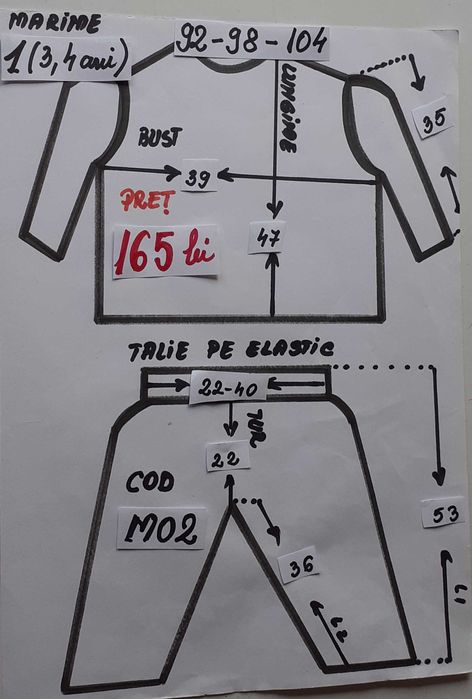 MARIME
1 (3,4 ani)
92-98-104
LUNGIME
35
BUST
39
PREȚ
165 lei
47
TALIE PE ELASTIC
22-40
TUR
22
COD
M02
53
36
L1
L2